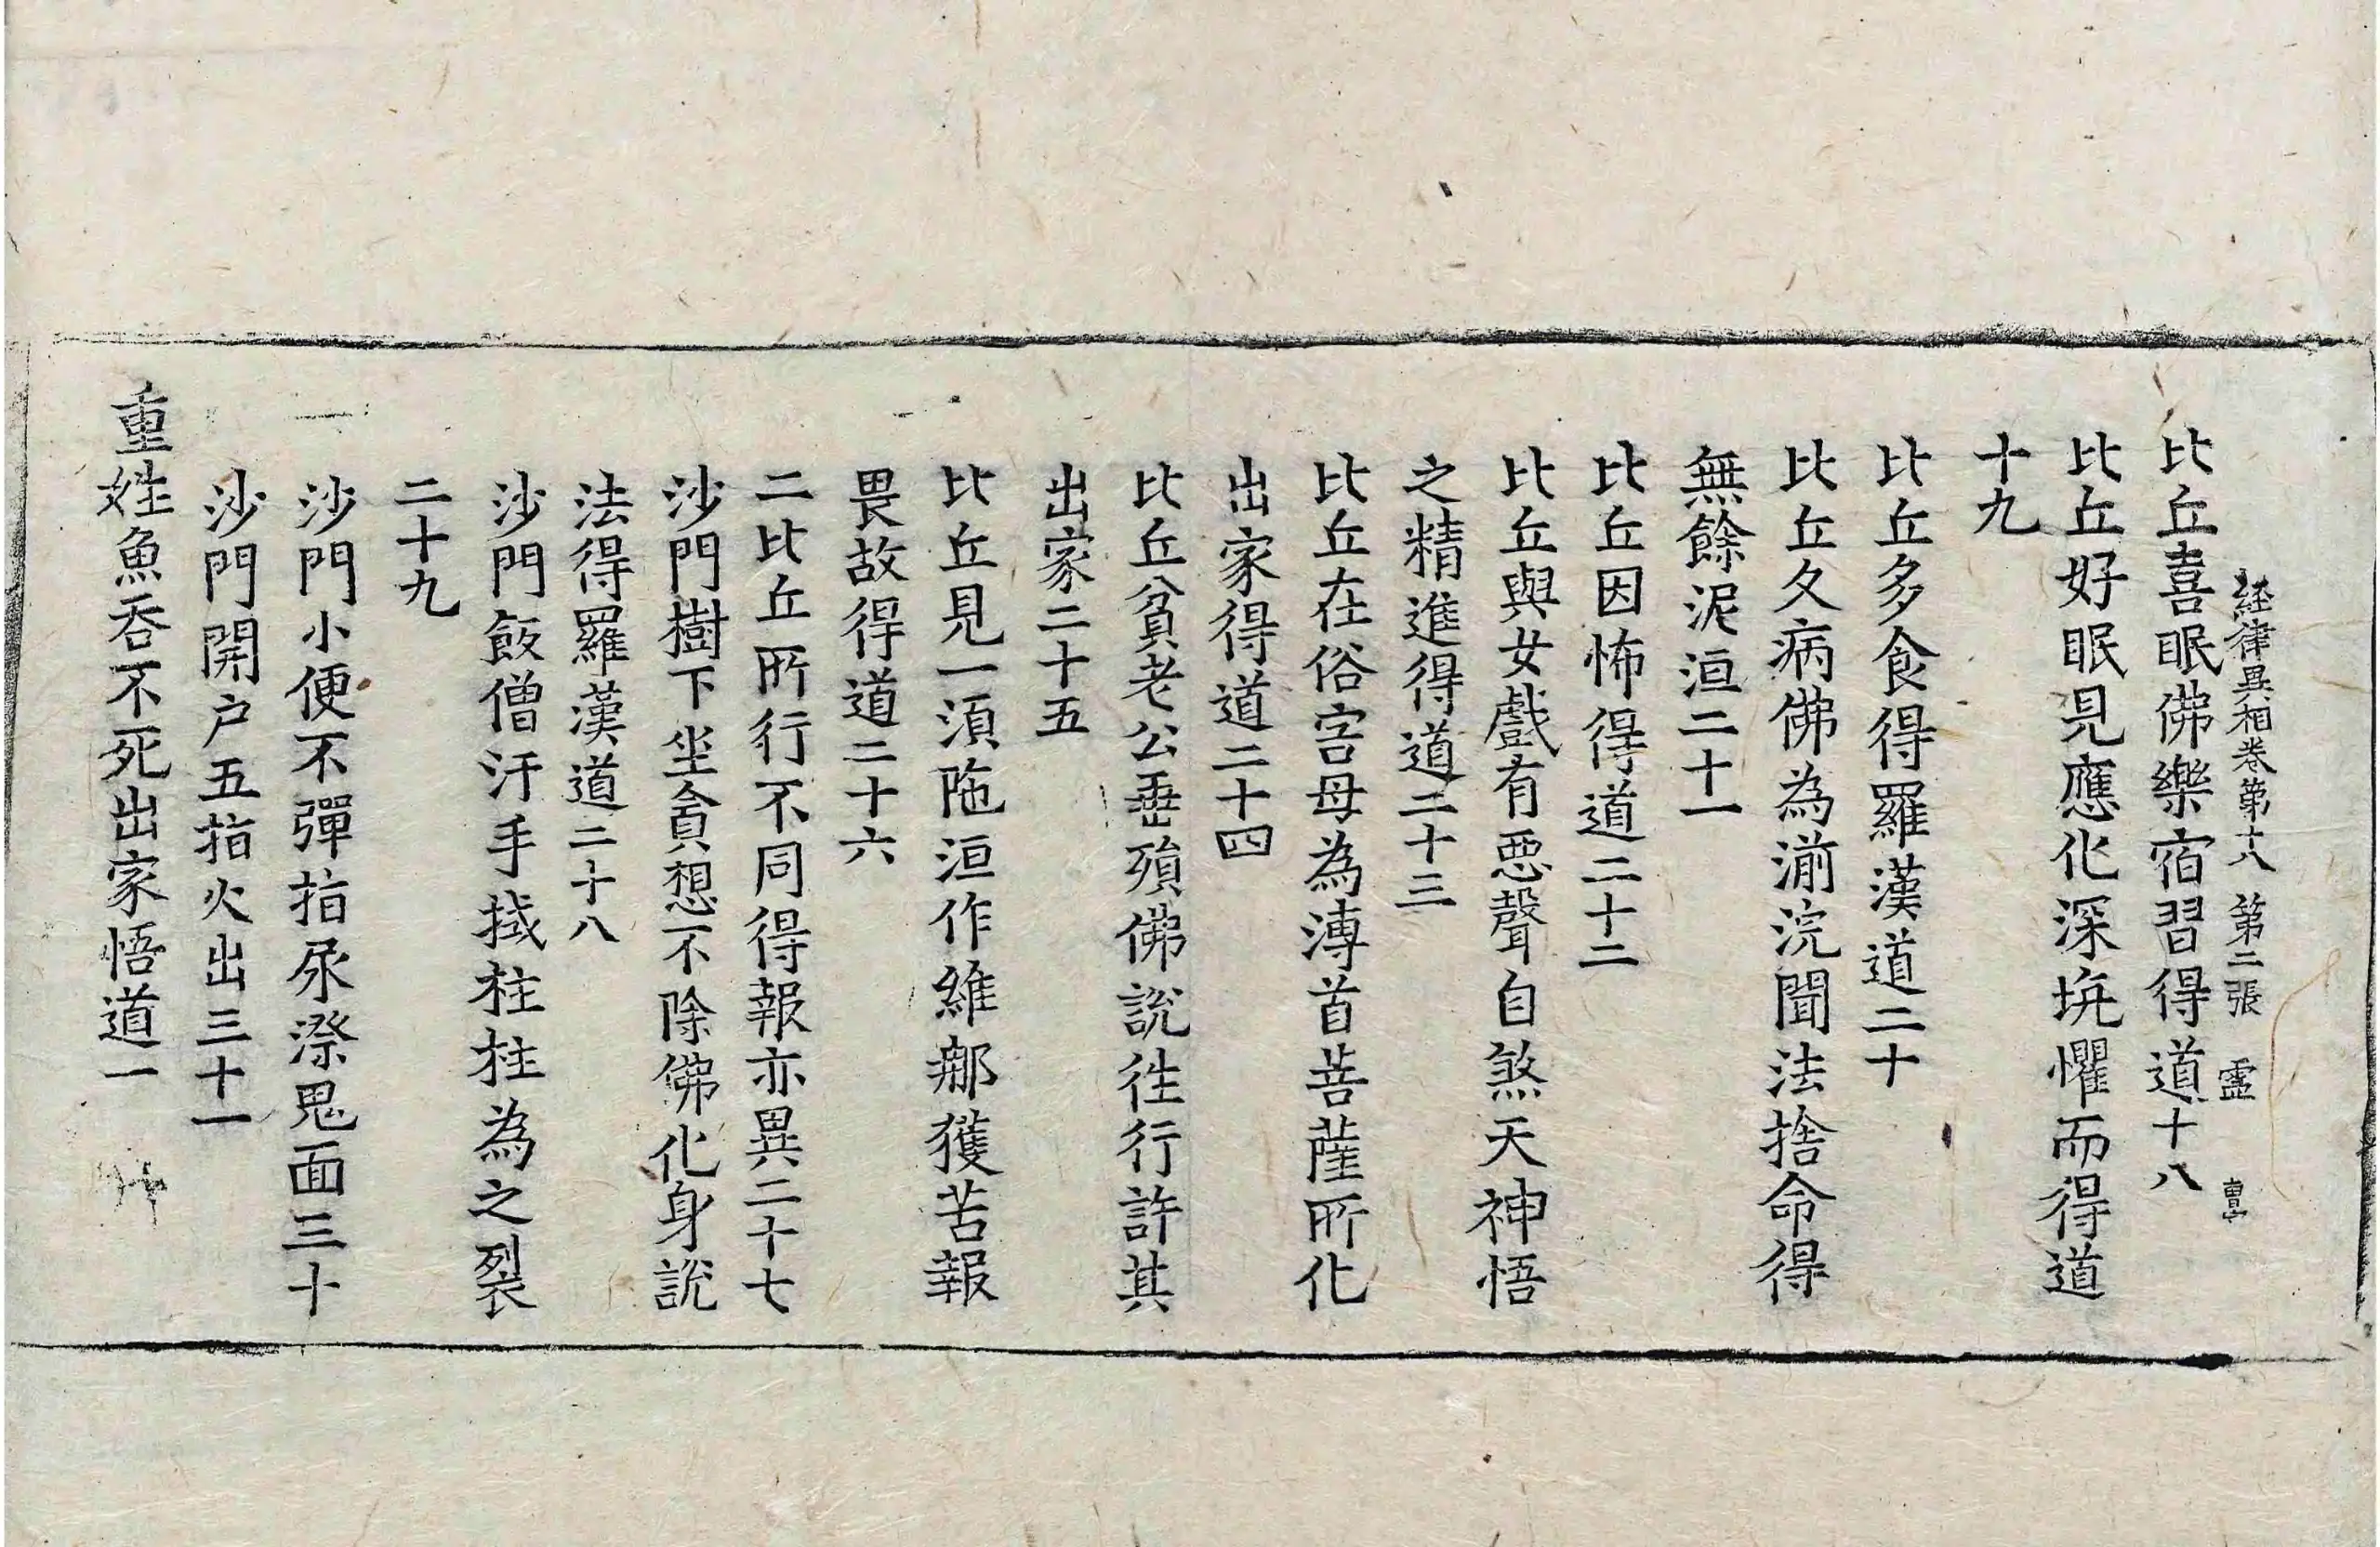 経律異相卷第十八 第二張 靈 曺
比丘喜眠佛樂宿習得道十八
比丘好眠見應化深坑懼而得道
十九
比丘多食得羅漢道二十
比丘久病佛為湔浣聞法捨命得
無餘泥洹二十一
比丘因怖得道二十二
比丘與女戲有惡聲自煞天神悟
之精進得道二十三
比丘在俗害母為溥首菩薩所化
出家得道二十四
比丘貧老公垂殞佛說徃行許其
出家二十五
比丘見一須陁洹作維那獲苦報
畏故得道二十六
二比丘所行不同得報亦異二十七
沙門樹下坐貪想不除佛化身說
法得羅漢道二十八
沙門飯僧汙手拭柱柱為之裂
二十九
沙門小便不彈指尿㳿鬼面三十
沙門開户五指火出三十一
重姓魚吞不死出家悟道一